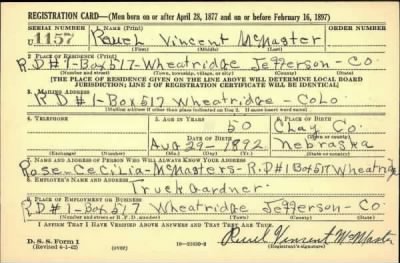 REGISTRATION CARD—(Men born on or after April 28, 1877 and on or before February 16, 1897)
SERIAL NUMBER 1. NAME (Print) ORDER NUMBER
U 1157 Ruel Vincent McMaster
(First) (Middle) (Last)
2. PLACE OF RESIDENCE (Print)
R.D#1-Box517-Wheatridge Jefferson-Co
(Number and street) (Town, township, village, or city) (County) (State)
[THE PLACE OF RESIDENCE GIVEN ON THE LINE ABOVE WILL DETERMINE LOCAL BOARD
JURISDICTION; LINE 2 OF REGISTRATION CERTIFICATE WILL BE IDENTICAL]
3. MAILING ADDRESS
R.D#1-Box517 Wheatridge-Colo
[Mailing address if other than place indicated on line 2. If same insert word same]
4. TELEPHONE 5. AGE IN YEARS 6. PLACE OF BIRTH
50 Clay Co.
DATE OF BIRTH (Town or county)
Aug-29-1892 Nebraska
(Exchange) (Number) (Mo.) (Day) (Yr.) (State or country)
7. NAME AND ADDRESS OF PERSON WHO WILL ALWAYS KNOW YOUR ADDRESS
Rose-Cecilia-McMasters-R.D#1Box517Wheatridge
8. EMPLOYER'S NAME AND ADDRESS
Truck Gardner.
9. PLACE OF EMPLOYMENT OR BUSINESS
R.D#1-Box517 Wheatridge Jefferson-Co
(Number and street or R. F. D. number) (Town) (County) (State)
I AFFIRM THAT I HAVE VERIFIED ABOVE ANSWERS AND THAT THEY ARE TRUE.
D. S. S. Form 1
(Revised 4-1-42) (over) Ruel Vincent McMaster
(Registrant's signature)